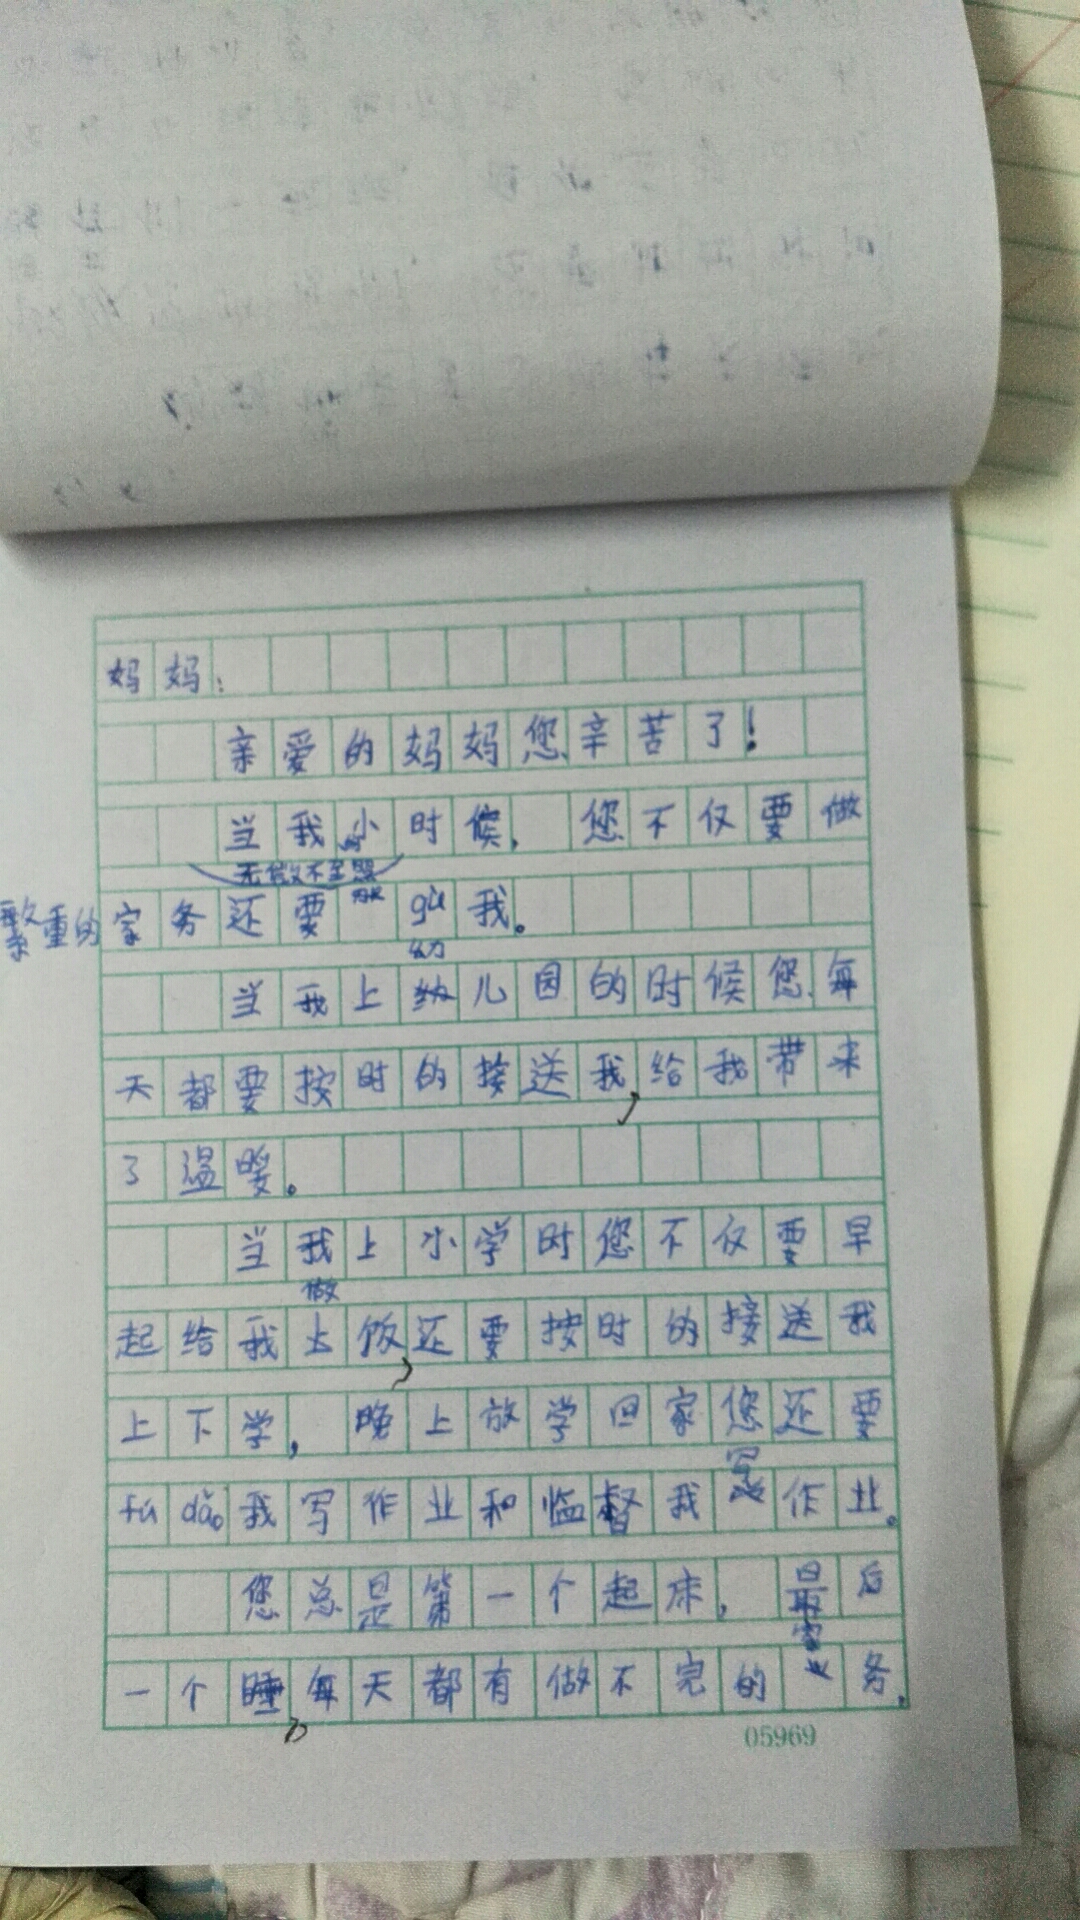 妈妈：
亲爱的妈妈您辛苦了！
当我小时候，您不仅要做
无微不至照
繁重的家务还要顾gù我。
幼
当我上幼儿园的时候您每
天都要按时的接送我，给我带来
了温暖。
当我上小学时您不仅要早
做
起给我去饭，还要按时的接送我
上下学，晚上放学回家您还要
写
fú dǎo我写作业和监督我作业。
您总是第一个起床，最后
一个睡，每天都有做不完的家务，
05969